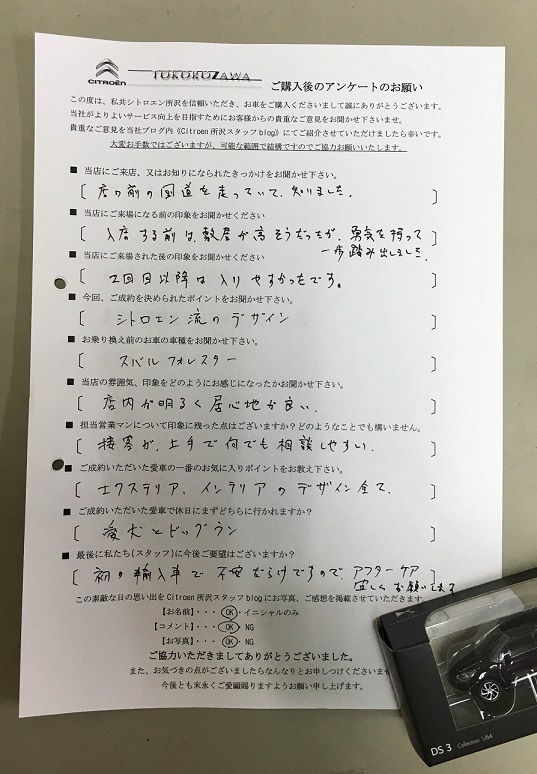 CITROËN
TOKOROZAWA
ご購入後のアンケートのお願い
この度は、私共シトロエン所沢を信頼いただき、お車をご購入くださいまして誠にありがとうございます。
当社がよりよいサービス向上を目指すためにお客様からの貴重なご意見をお聞かせ下さいませ。
貴重なご意見を当社ブログ内《Citroen所沢スタッフblog》にてご紹介させていただけましたら幸いです。
大変お手数ではございますが、可能な範囲で結構ですのでご協力お願いいたします。
■ 当店にご来店、又はお知りになられたきっかけをお聞かせ下さい。
[ 店の前の国道を走っていて、知りました。 ]
■ 当店にご来場になる前の印象をお聞かせください
[ 入店する前は、敷居が高そうだったが、勇気を持って
一歩踏み出しました。 ]
■ 当店にご来場された後の印象をお聞かせください
[ 2回目以降は入りやすかったです。 ]
■ 今回、ご成約を決められたポイントをお聞かせ下さい。
[ シトロエン流のデザイン ]
■ お乗り換え前のお車の車種をお聞かせ下さい。
[ スバル フォレスター ]
■ 当店の雰囲気、印象をどのようにお感じになったかお聞かせ下さい。
[ 店内が明るく居心地が良い。 ]
■ 担当営業マンについて印象に残った点はございますか?どのようなことでも構いません。
[ 接客が、上手で何でも相談しやすい. ]
■ ご成約いただいた愛車の一番のお気に入りポイントをお教え下さい。
[ エクステリア、インテリアのデザイン全て. ]
■ ご成約いただいた愛車で休日にまずどちらに行かれますか?
[ 愛犬とドッグラン ]
■ 最後に私たち(スタッフ)に今後ご要望はございますか?
[ 初の輸入車で不安だらけですので、アフターケア
宜しくお願いします
この素敵な日の思い出をCitroen所沢スタッフblogにお写真、ご感想を掲載させていただきます。
【お名前】・・・OK・イニシャルのみ
【コメント】・・・OK・NG
【お写真】・・・OK・NG
ご協力いただきましてありがとうございました。
また、お気づきの点がございましたらなんなりとお申しつけくださいませ
今後とも末永くご愛顧賜りますようお願い申し上げます。
DS 3 Collection 1/64